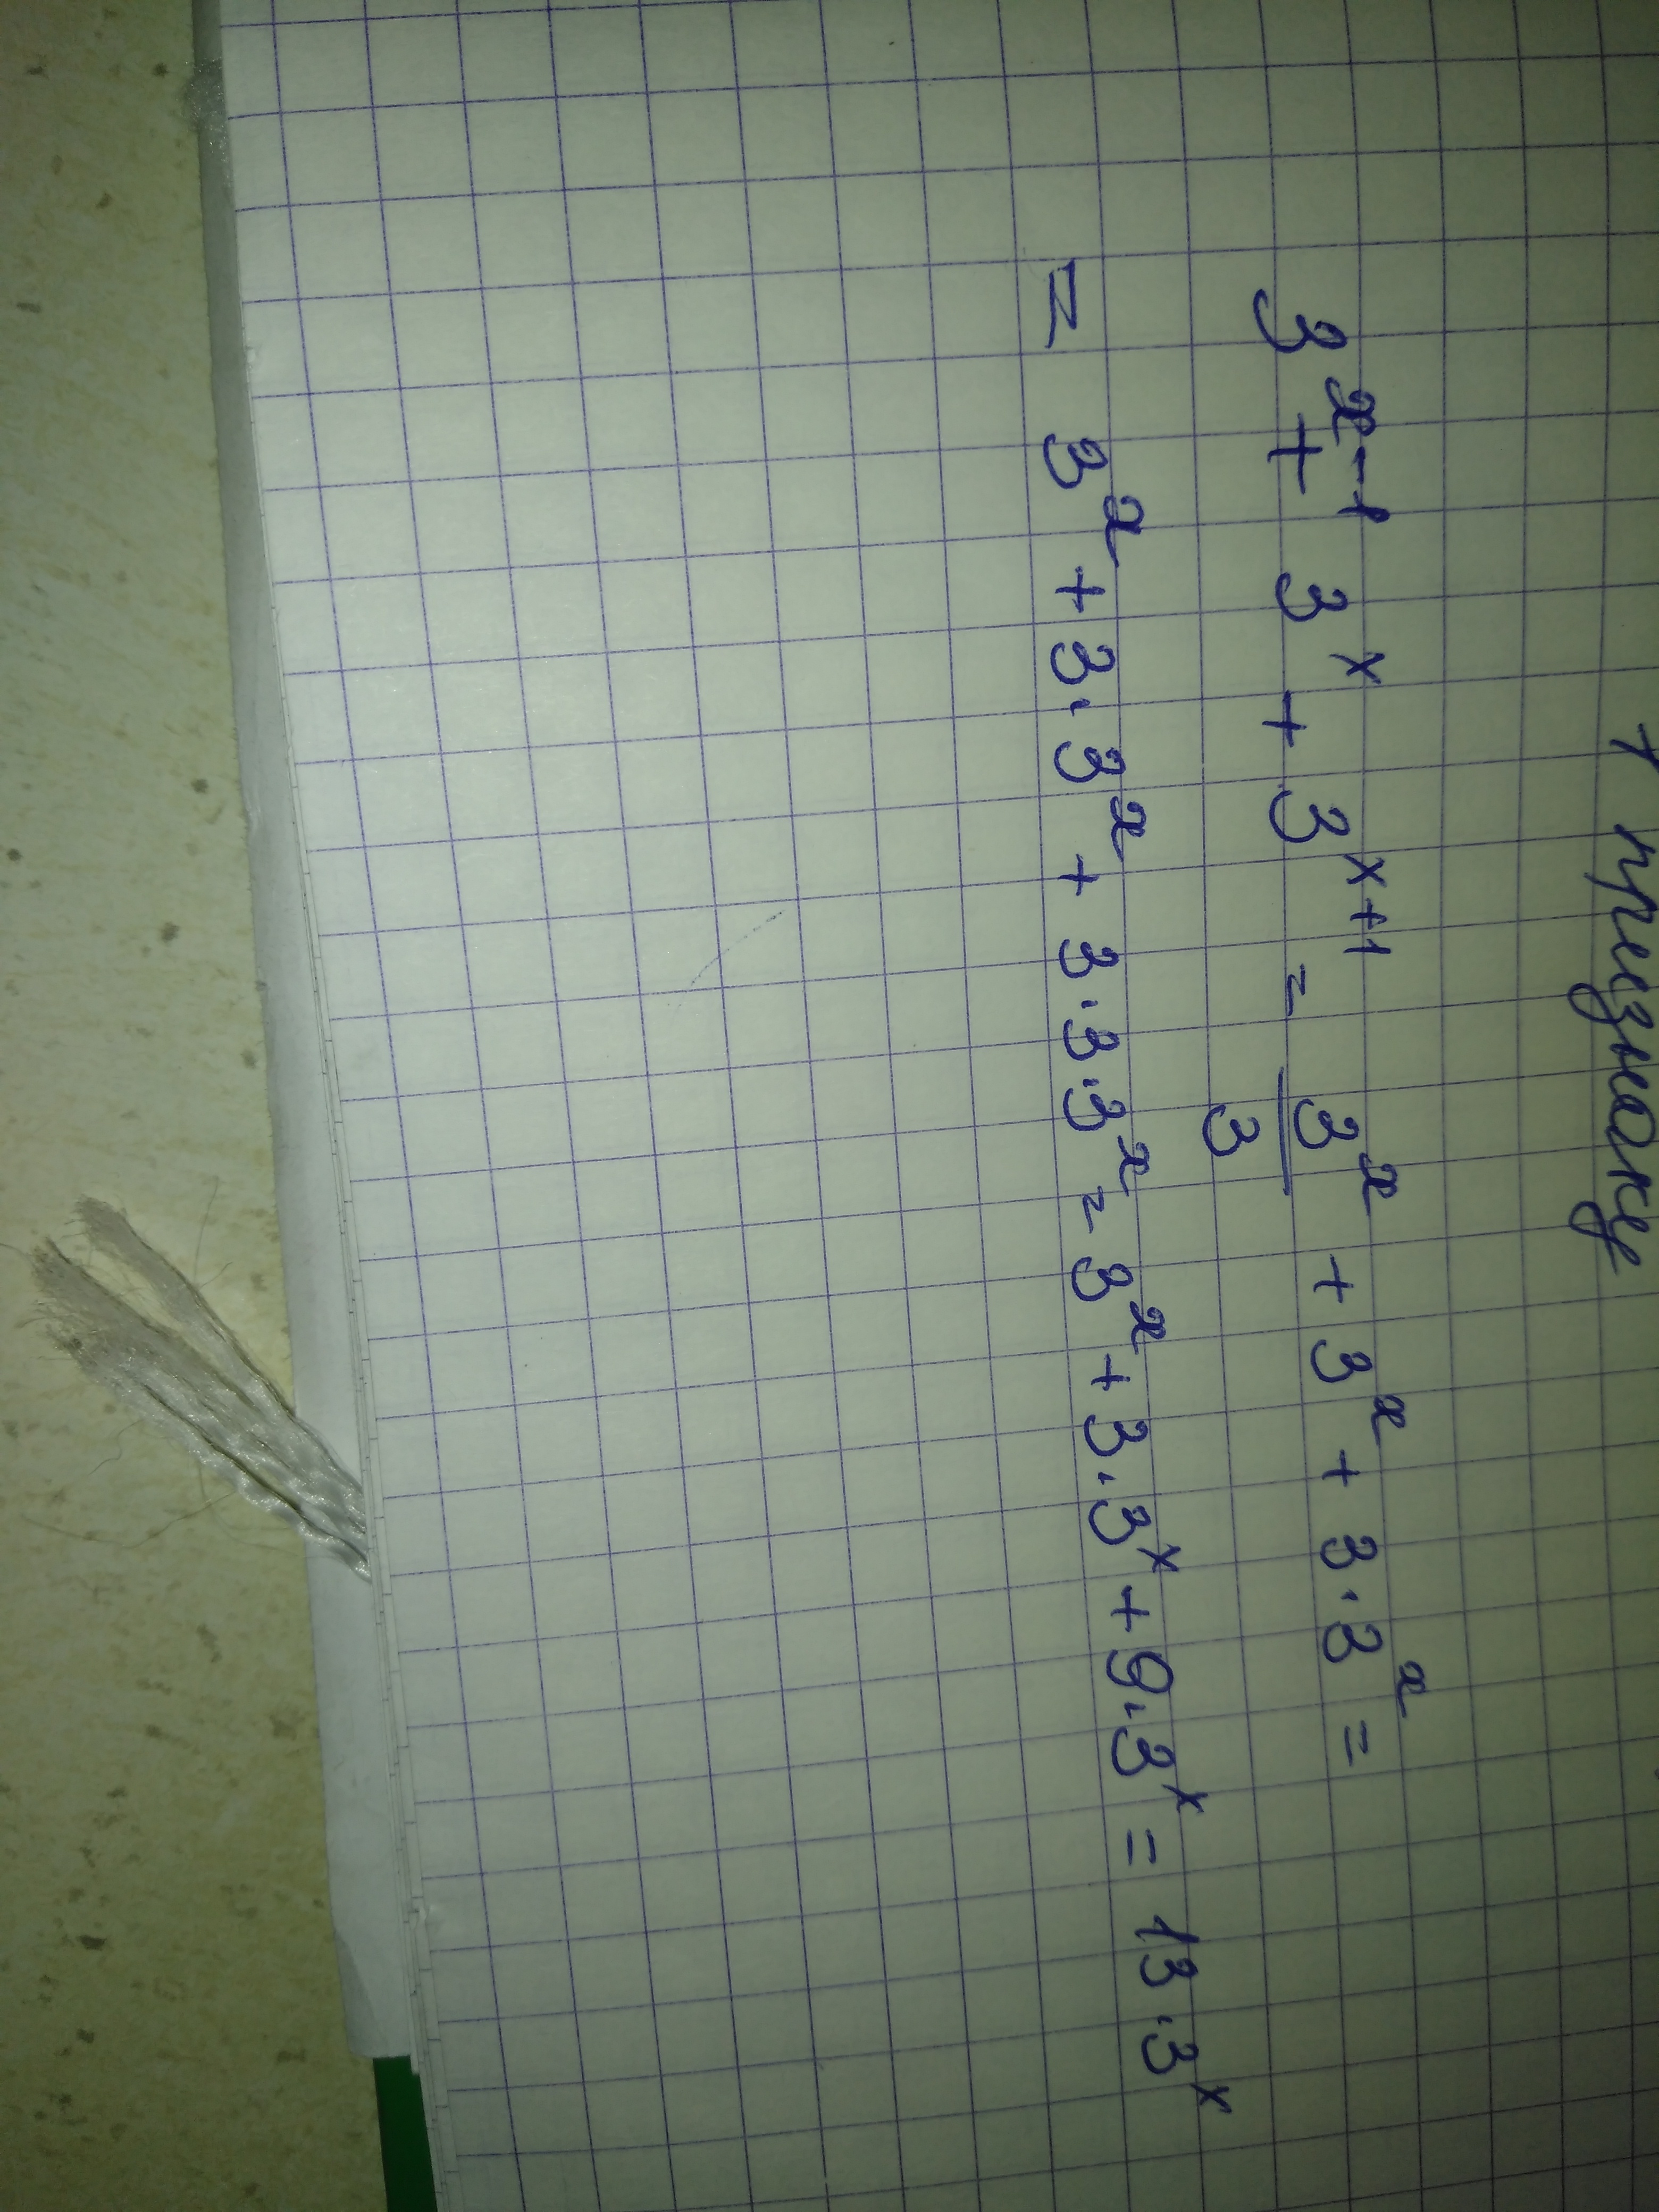 + признаке
3^{x-1} + 3^x + 3^{x+1} = \frac{3^x}{3} + 3^x + 3 · 3^x =
= 3^x + 3 · 3^x + 3 · 3 · 3^x = 3^x + 3 · 3^x + 9 · 3^x = 13 · 3^x